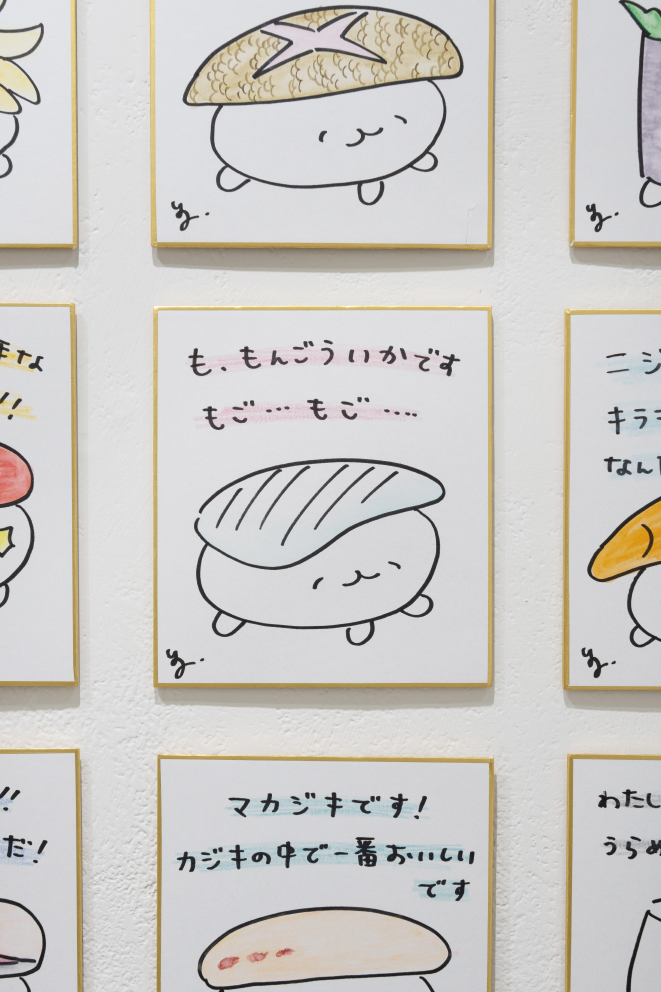 も、もんごういかです
もご… もご ‥‥
ニジ
キラ
なん
マカジキです!
カジキの中で一番おいしい
です
!!
!!
だ!
わたし
うらめ